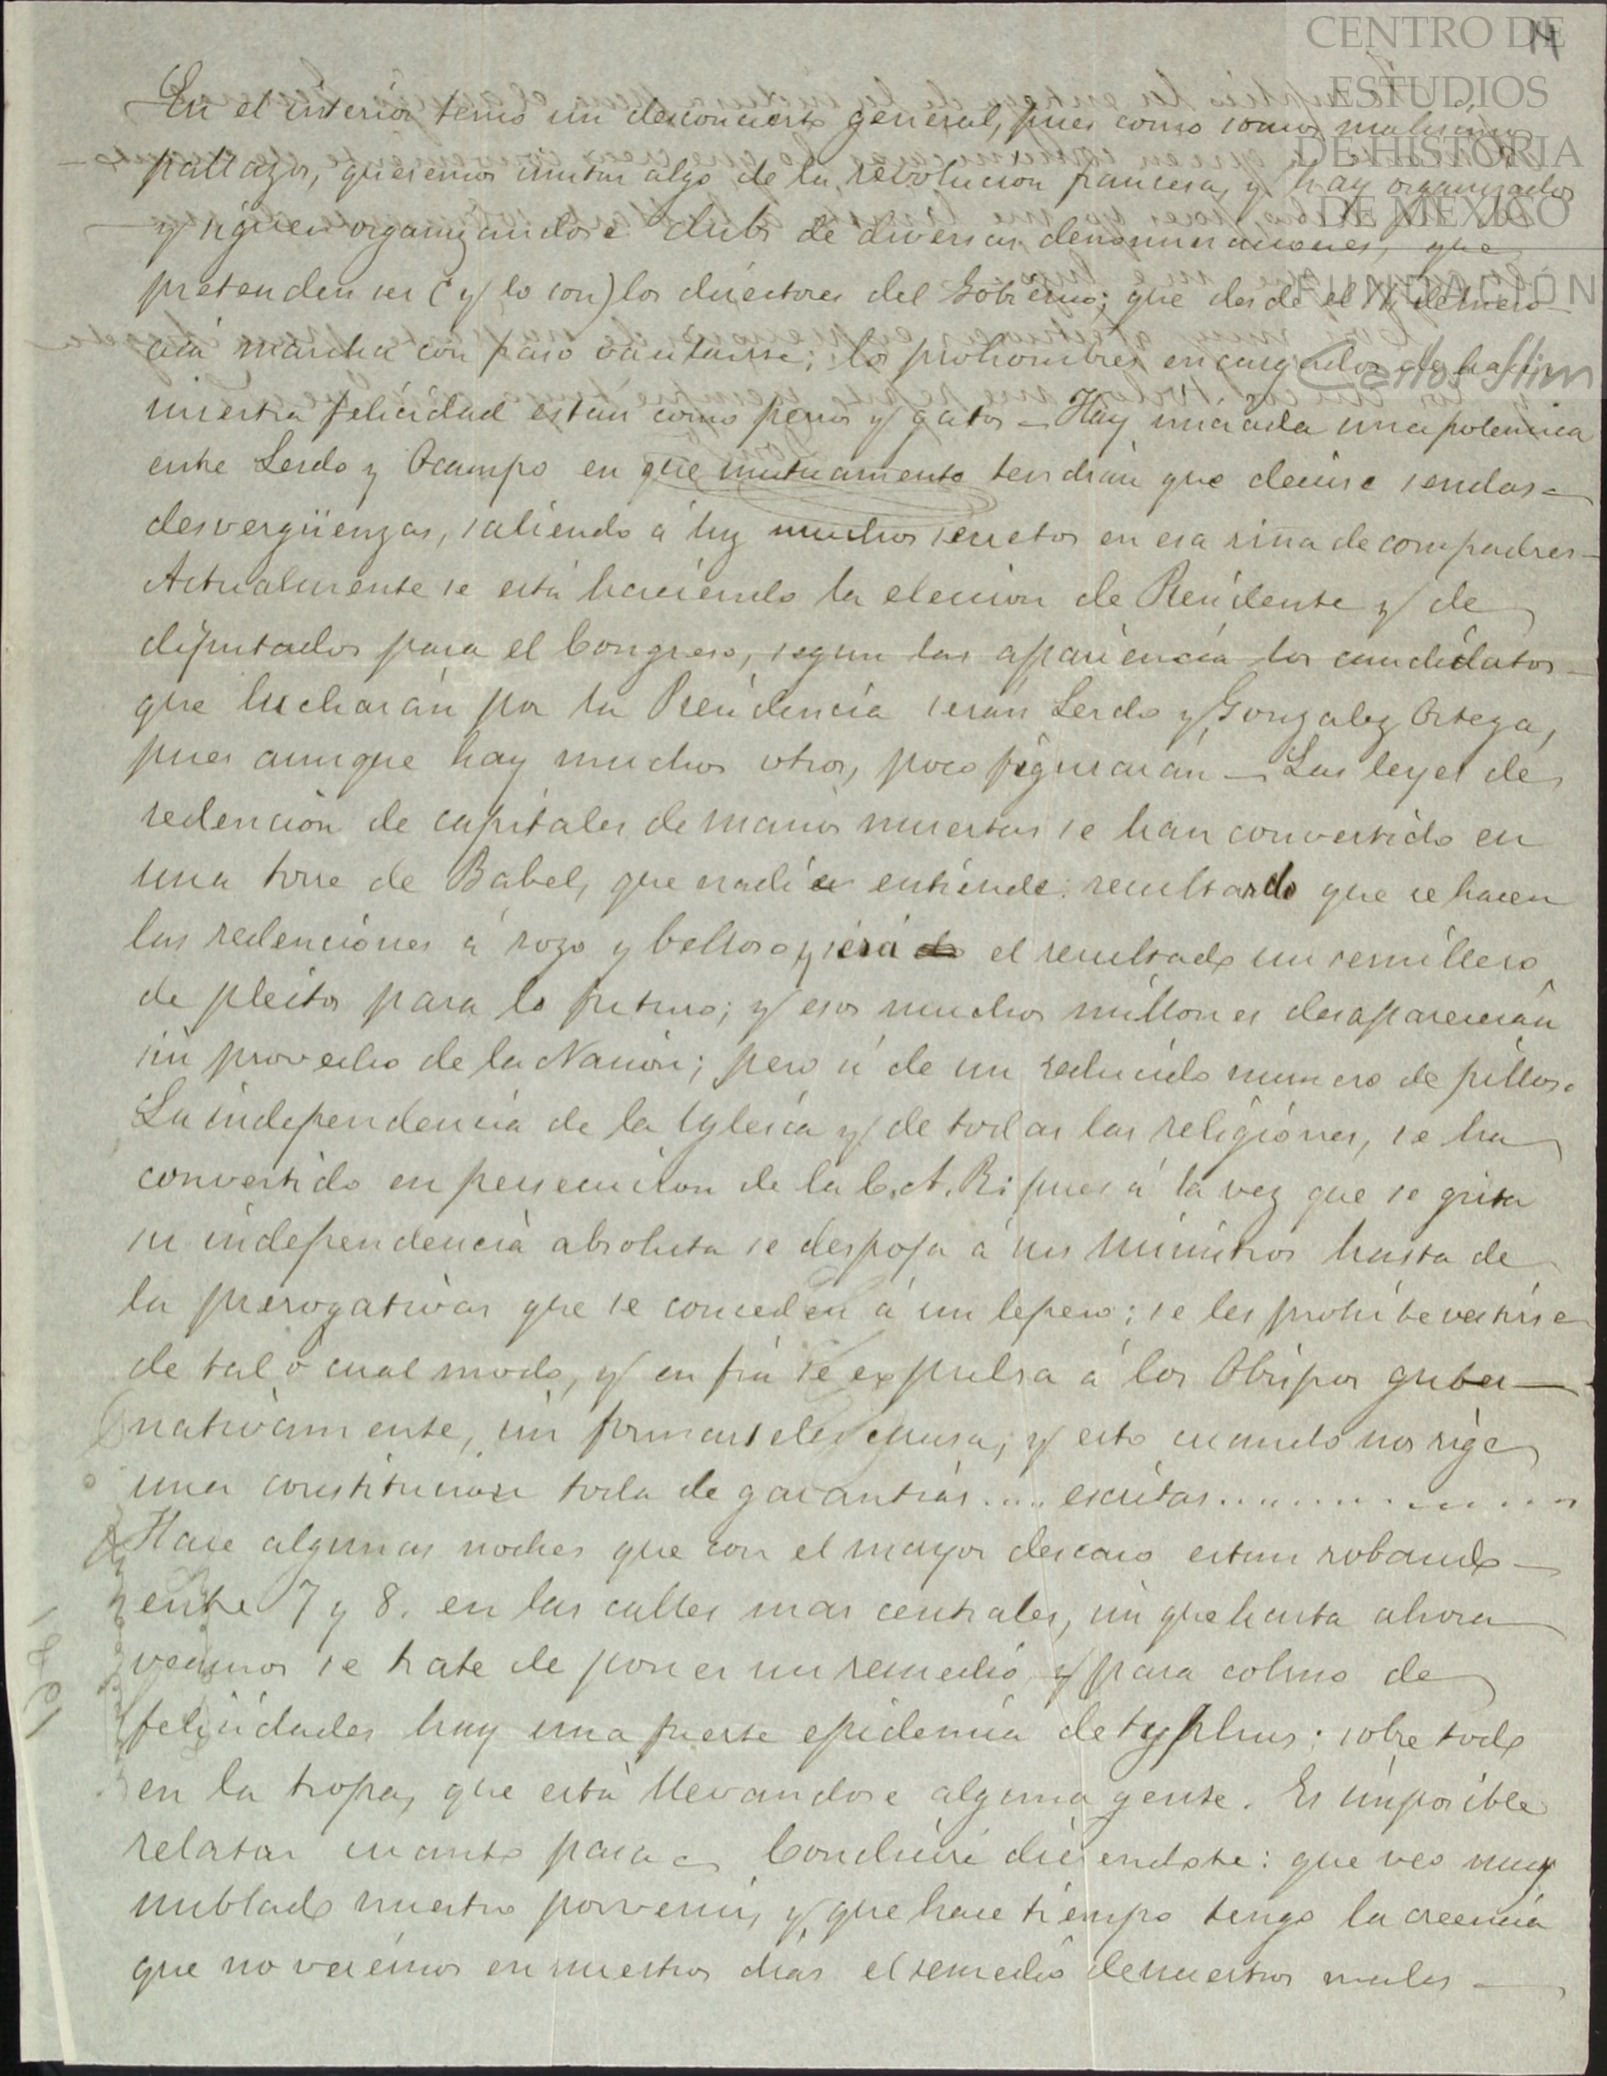 CENTRO DE
ESTUDIOS
DE HISTORIA
DE MEXICO
FUNDACIÓN
Carlos Slim
14
En el interior temo un desconcierto general, pues como somos malisimos
pallazos, queremos imitar algo de la revolucion francesa, y hay organizados
y siguen organizandose clubs de diversas denominaciones, que
pretenden ser (y lo son) los directores del Gobierno; que desde el 11 de Enero
acá marcha con paso vacilante; los prohombres encargados de hacer
nuestra felicidad estan como perros y gatos - Hay iniciada una polemica
entre Lerdo y Ocampo en que mutuamente tendrán que decirse sendas
desvergüenzas, saliendo á luz muchos secretos en esa riña de compadres -
Actualmente se está haciendo la elecion de Presidente y de
diputados para el Congreso, segun las apariencia los candidatos
que lucharán por la Presidencia serán Lerdo y Gonzalez Ortega,
pues aunque hay muchos otros, poco figurarán - Las leyes de
redencion de capitales de manos muertas se han convertido en
una torre de Babel, que nadie entiende: resultando que se hacen
las redenciones á rozo y belloso, y será el resultado un semillero
de pleitos para lo futuro; y esos muchos millones desaparecerán
sin provecho de la Nacion; pero si de un reducido numero de pillos.
La independencia de la Yglesia y de todas las religiones, se ha
convertido en persecucion de la C. A. R: pues á la vez que se grita
su independencia absoluta se despoja á sus Ministros hasta de
la prerogativas que se conceden á un lepero; se les prohibe vestirse
de tal ó cual modo, y en fin se expulsa á los Obispos guber-
nativamente, sin formarseles causa; y esto cuando nos rige
una constitucion toda de garantías .... escritas..............
Hace algunas noches que con el mayor descaro estan robando
entre 7 y 8. en las calles mas centrales, sin que hasta ahora
veamos se trate de poner un remedio, y para colmo de
felicidades hay una fuerte epidemia de typhus: sobre todo
en la tropa, que está llevandose alguna gente. Es imposible
relatar cuanto pasa - Concluiré diciendote: que veo muy
nublado nuestro porvenir, y que hace tiempo tengo la creencia
que no verémos en nuestros dias el remedio de nuestros males -